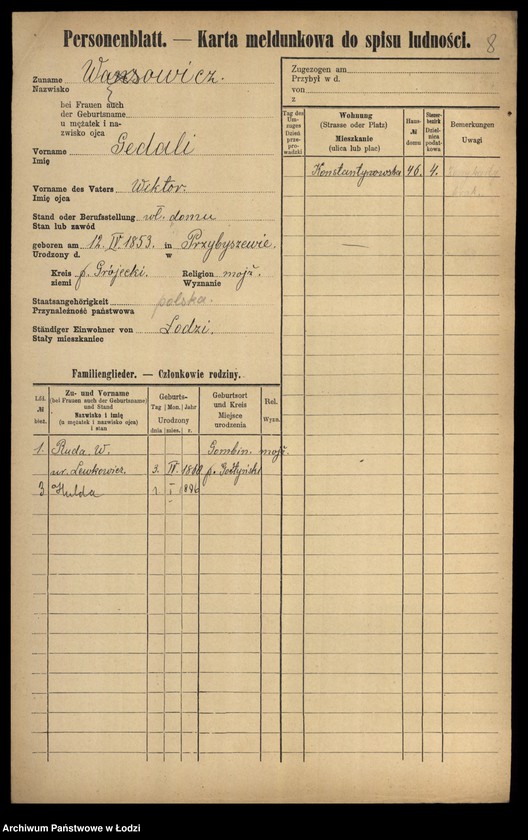 Personenblatt. — Karta meldunkowa do spisu ludności. 8
Zuname
Nazwisko
bei Frauen auch
der Geburtsname
u mężatek i na-
zwisko ojca
Vorname Gedali
Imię
Vorname des Vaters Wiktor.
Imię ojca
Stand oder Berufsstellung wł. domu
Stan lub zawód
geboren am 12. IV. 1853. in Przybyszewie.
Urodzony d. w
Kreis p. Grójecki. Religion mojż.
ziemi Wyznanie
Staatsangehörigkeit polska.
Przynależność państwowa
Ständiger Einwohner von Łodzi.
Stały mieszkaniec
Familienglieder. — Członkowie rodziny.
Lfd. № bież.
Zu- und Vorname
(bei Frauen auch der Geburtsname)
und Stand
Nazwisko i imię
(u mężatek i nazwisko ojca)
i stan
Geburts-
Tag Mon. Jahr
Urodzony
dnia mies. r.
Geburtsort
und Kreis
Miejsce
urodzenia
Rel.
Wyzn.
1. Ruda W. Gombin. mojż.
ur. Lewkowicz. 3. IV. 1860 p. Gostyński
3 Hulda 1 I 1896
Zugezogen am
Przybył w d.
von
z
Tag des
Um-
zuges
Dzień
prze-
prowadzki
Wohnung
(Strasse oder Platz)
Mieszkanie
(ulica lub plac)
Haus-
№
domu
Steuer-
bezirk
Dziel-
nica
podat-
kowa
Bemerkungen
Uwagi
Konstantynowska 46. 4.
Archiwum Państwowe w Łodzi